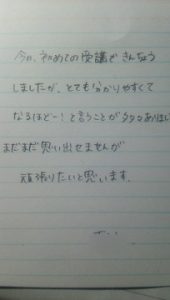 今日、初めての受講できんちょう
しましたが、とても分かりやすくて
なるほどー!と言うことが多々ありました
まだまだ思い出せませんが
頑張りたいと思います。